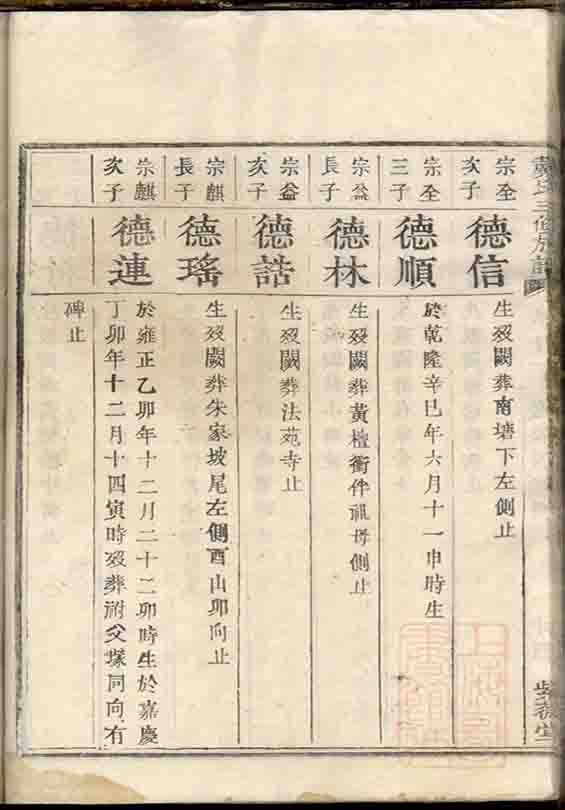 宗全次子
德信
生歿闕葬南塘下左側止
宗全三子
德順
於乾隆辛巳年六月十一申時生
宗益長子
德林
生歿闕葬黃檀衝伴祖母側止
宗益次子
德誥
生歿闕葬法苑寺止
宗麒長子
德瑤
生歿闕葬朱家坡尾左側酉山卯向止
宗麒次子
德連
於雍正乙卯年十二月二十二卯時生於嘉慶
丁卯年十二月十四寅時歿葬祔父塚同向有
碑止